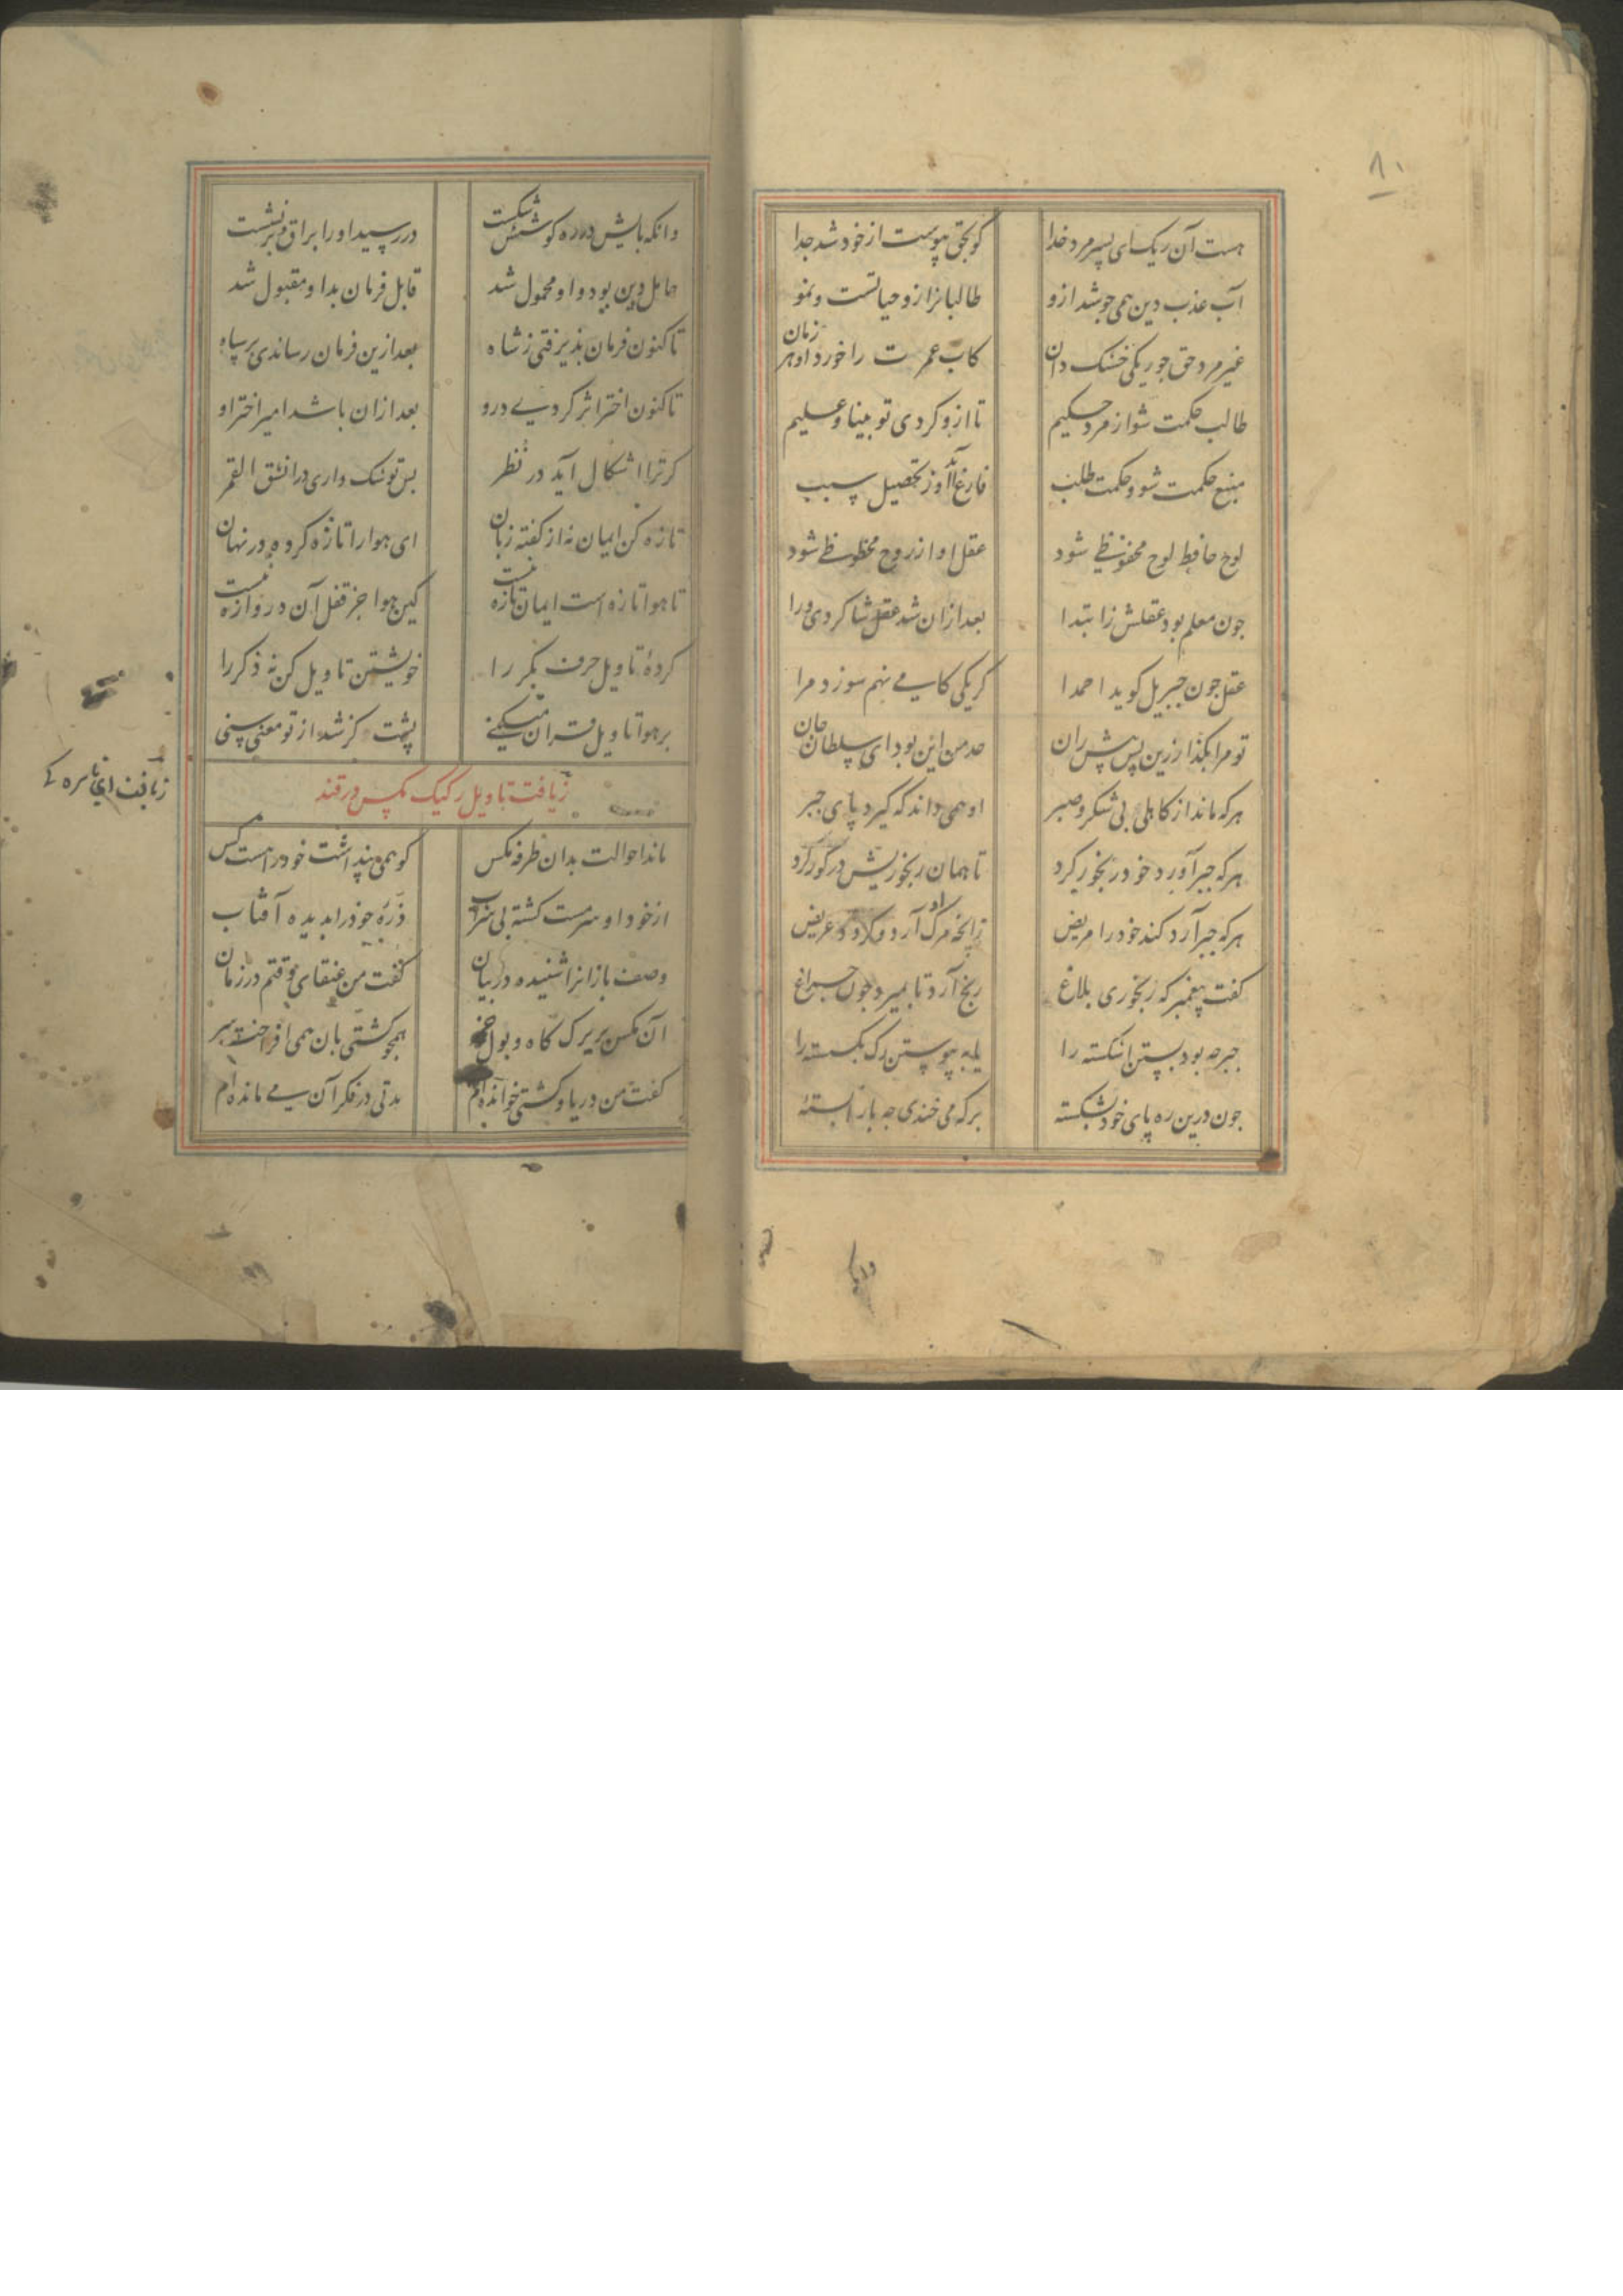 ۸۰
هست آن ریک ای پسر مرد خدا کو بحق پیوست از خود شد جدا
آب عذب دین همی جوشد ازو طالبانرا زو حیاتست و نمو
غیر مرد حق جو ریکی خشک دان کاب عمرت را خورد او هر زمان
طالب حکمت شو از مرد حکیم تا ازو کردی تو بینا و علیم
منبع حکمت شود حکمت طلب فارغ آید او ز تحصیل سبب
لوح حافظ لوح محفوظی شود عقل او از روح محظوظی شود
جون معلم بود عقلش ز ابتدا بعد ازان شد عقل شاکردی ورا
عقل جون جبریل کوید احمدا کر یکی کامی نهم سوزد مرا
تو مرا بکذار زین پس پیش ران حد من این بود ای سلطان جان
هرکه ماند از کاهلی بی شکر و صبر او همی داند که کیرد پای جبر
هرکه جبر آورد خود رنجور کرد تا همان رنجوریش در کور کرد
هرکه جبر آرد کند خود را مریض
کفت پیغمبر که رنجوری بلاغ رنج آرد تا بمیرد جون جراغ
جبر جه بود بستن اشکسته را یا به پیوستن رک بکسسته را
جون درین ره پای خود نشکسته بر که می خندی جه پا را بسته
وانکه
وانکه پایش در ره کوشش شکست در رسید او را براق و بر نشست
حامل دین بود و او محمول شد قابل فرمان بد او مقبول شد
تا کنون فرمان پذیرفتی ز شاه بعد ازین فرمان رساند بر سپاه
تا کنون اختر اثر کردی درو بعد ازان باشد امیر اختر او
کر ترا اشکال آید در نظر بس تو شک داری در انشق القمر
تازه کن ایمان نه از کفته زبان ای هوا را تازه کرده در نهان
تا هوا تازه است ایمان تازه نیست کین هوا جز قفل آن دروازه نیست
کردهٔ تاویل حرف بکر را خویشتن تاویل کن نه ذکر را
بر هوا تاویل قران میکنی پست و کژ شد از تو معنی سنی
زیافت تاویل رکیک مکس
زیافت ای ناسره
ماند احوالت بدان طرفه مکس کو همی پنداشت خود را هست کس
از خود او سرمست کشته بی شراب ذرّهٔ خود را بدیده آفتاب
وصف بازانرا شنیده در بیان کفت من عنقای وقتم در زمان
آن مکس بر برک کاه و بول خر همجو کشتی بان همی افراخت سر
کفت من دریا و کشتی خوانده‌ام مدتی در فکر آن می مانده‌ام